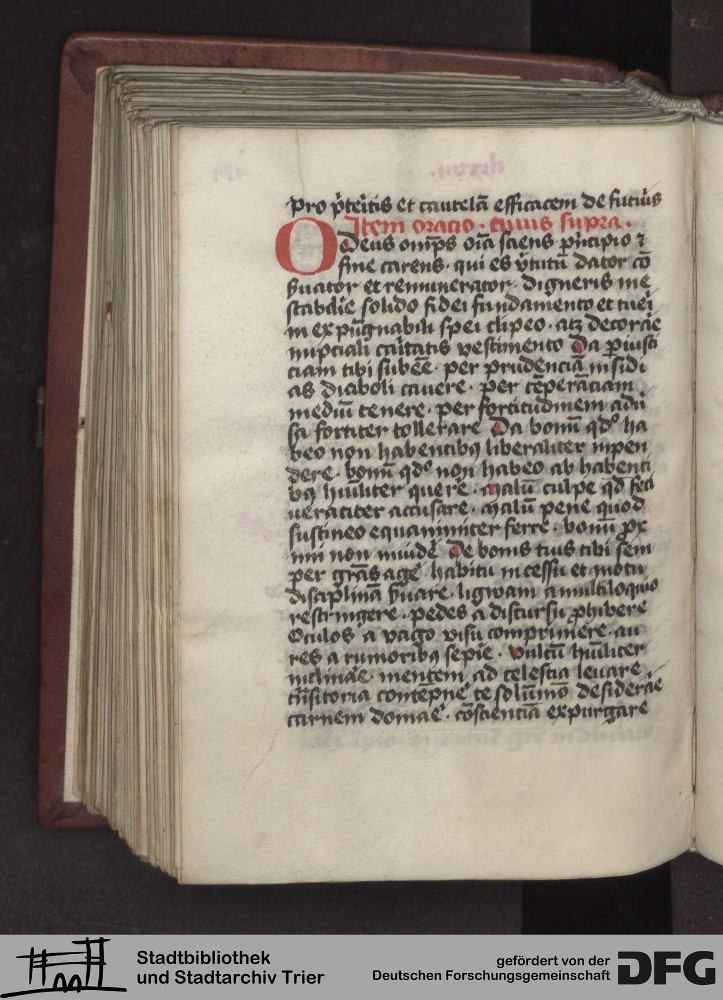 pro p̄teritis et cautelā efficacem de futuris
Item oracio · cuius supra ·
O deus omps oīa sciens principio ⁊
fine carens · qui es virtutū dator cō
ẜuator et remunerator · digneris me
stabilire solido fidei fundamento et tueri
inexpugnabili spei clipeo · atqꝫ decorare
nupciali caritatis vestimento Da per iusti
ciam tibi subēe · per prudenciam insidi
as diaboli cauere · per tēperāciam
mediū tenere · per fortitudinem aduer
sa fortiter tollerare Da bonū qdͦ ha
beo non habentibꝯ liberaliter inpen
dere · bonū qdͦ non habeo ab habenti
bꝯ hūiliter querere · malū culpe qd feci
ueraciter accusare · malū pene quod
sustineo equanimiter ferre · bonū prox
imi non inuidere De bonis tuis tibi sem
per grās agere habitu incessu et motu
disciplinā ẜuare · ligwam a multiloquio
restringere · pedes a discursu prohibere
Oculos a vago visu comprimere · au
res a rumoribꝯ sepire · vultū hūiliter
inclinare · mentem ad celestia leuare ·
trāsitoria contēpnere te solūmō desiderare
carnem domare · cōscienciā expurgare
Stadtbibliothek
und Stadtarchiv Trier
gefördert von der
Deutschen Forschungsgemeinschaft
DFG